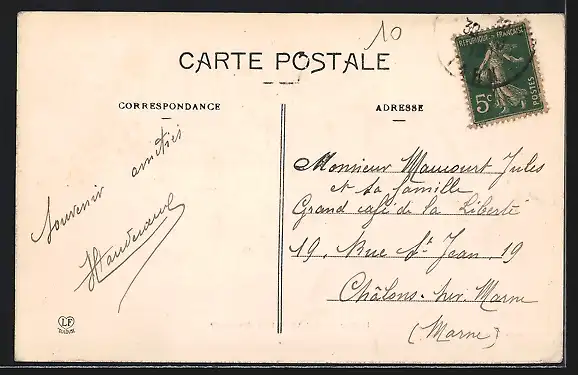 10
CARTE POSTALE
RÉPUBLIQUE FRANÇAISE
5c
POSTES
CORRESPONDANCE
ADRESSE
Souvenir amitiés
Monsieur Maucourt Jules
et sa famille
Grand café de la Liberté
19, Rue St Jean, 19
Châlons-sur-Marne
(Marne)
LF